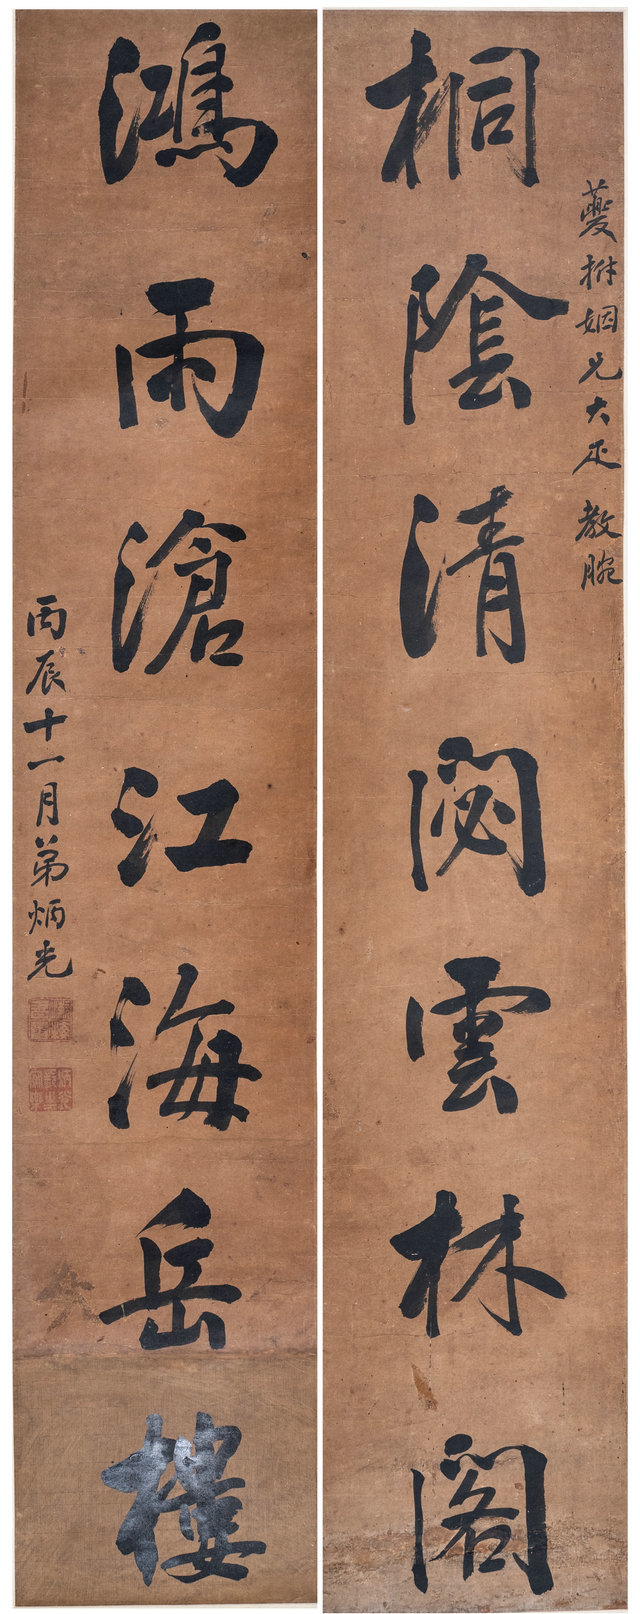 夔拊姻兄大疋 教腕
桐陰清閟雲林閣
鴻雨滄江海岳樓
丙辰十一月弟炳光